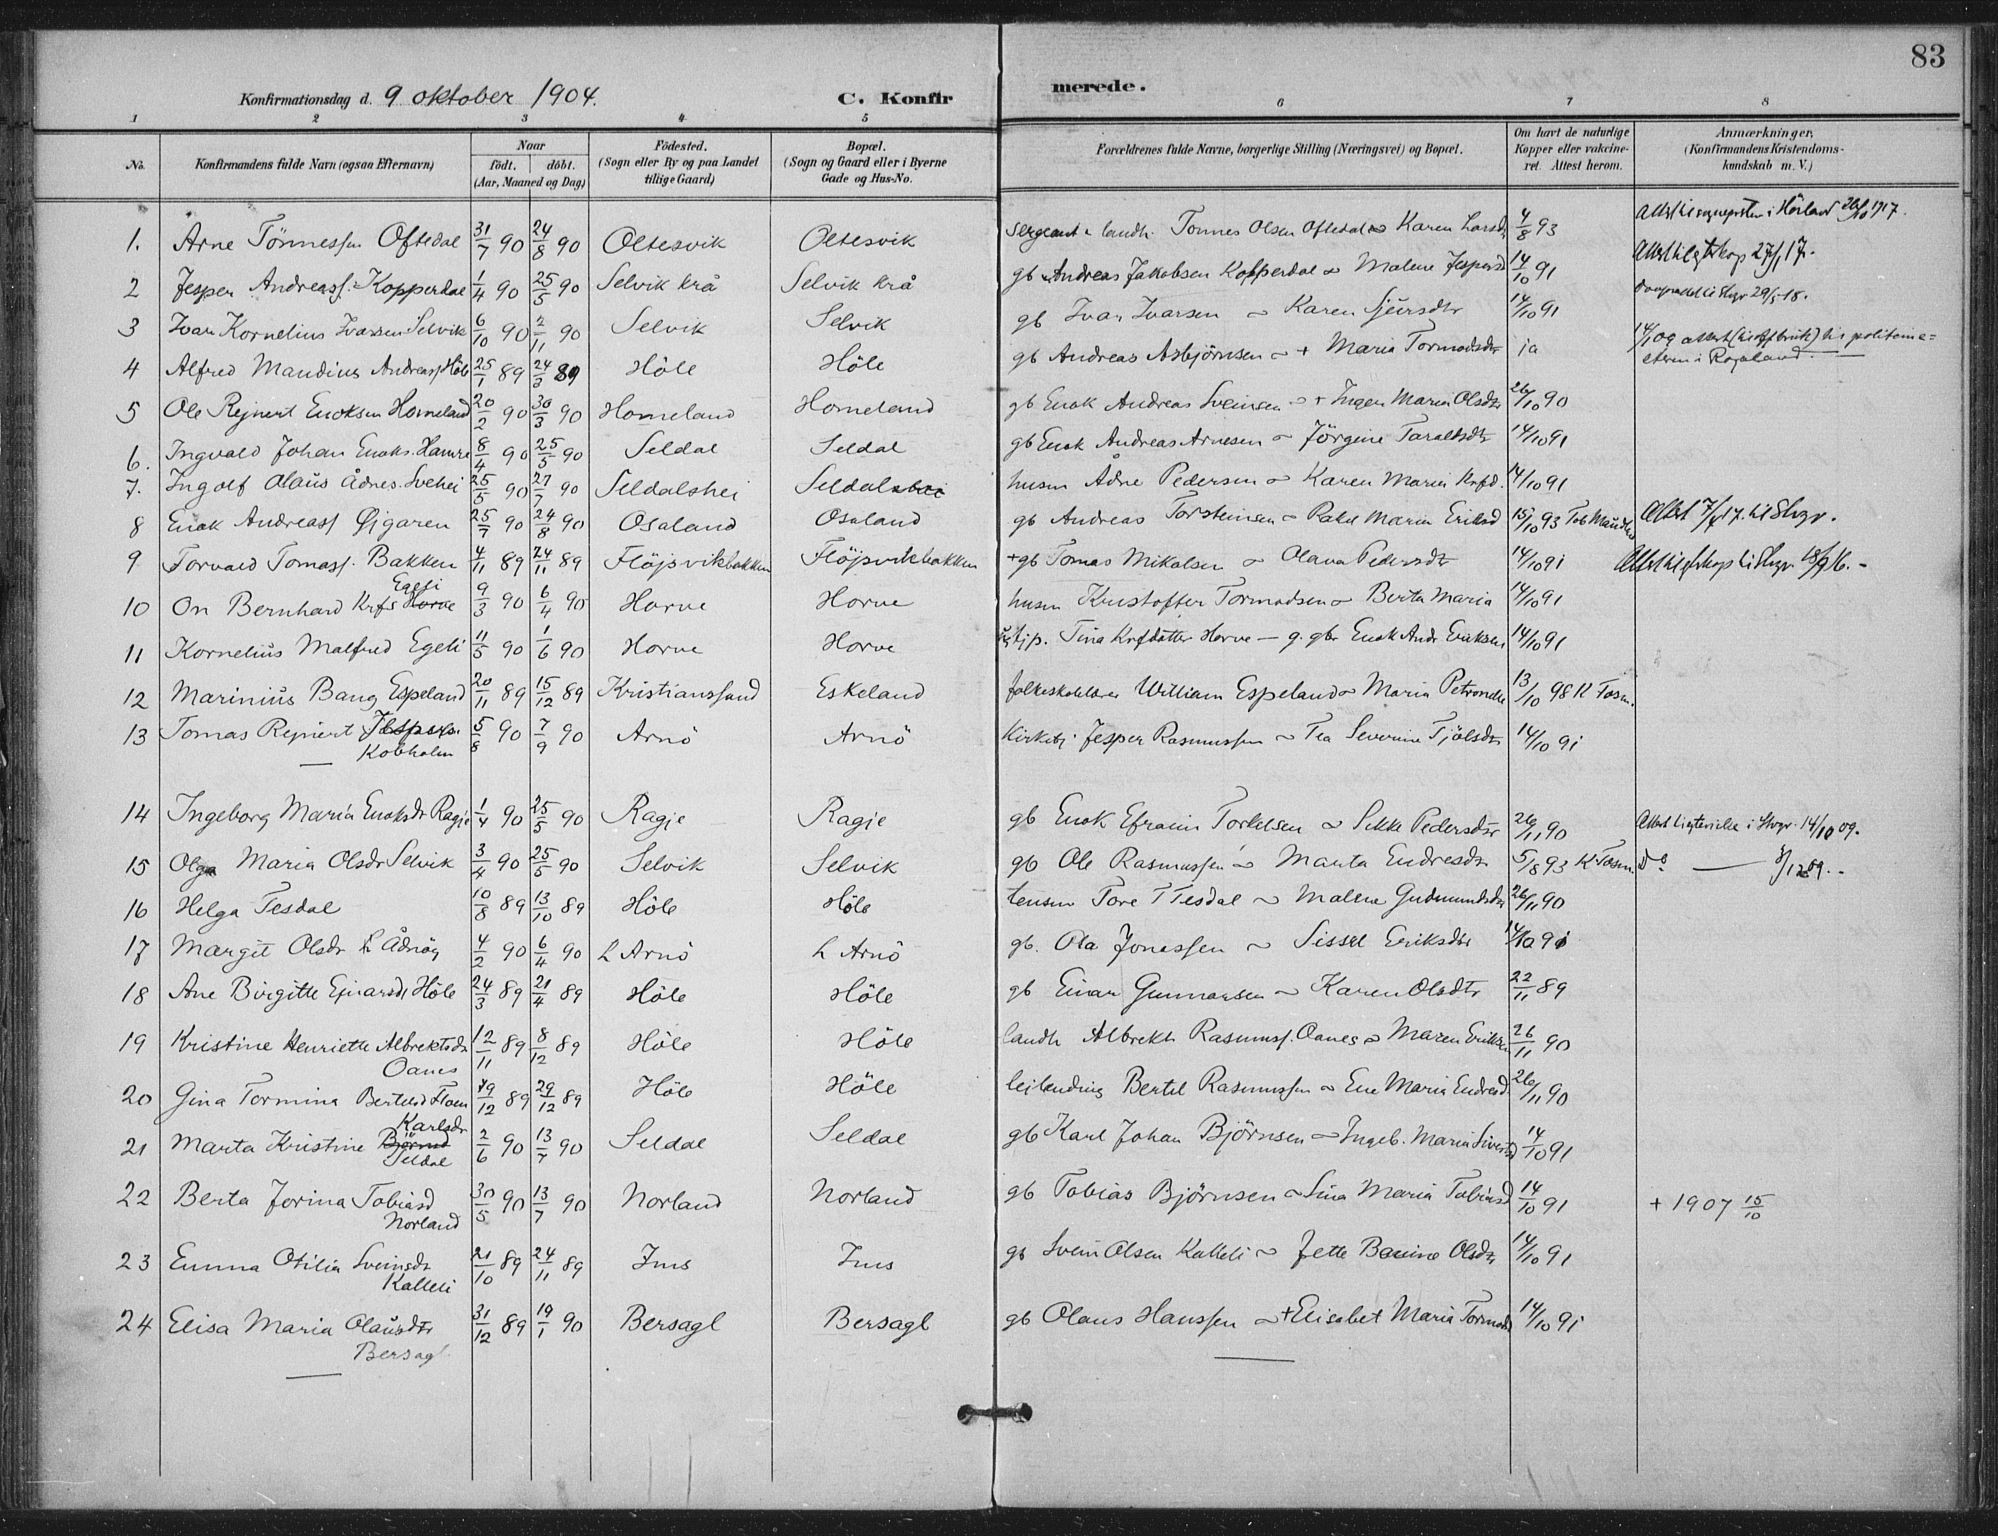 83
Konfirmationsdag d. 9 oktober 1904. C. Konfir merede.
1 2 3 4 5 6 7 8
No. Konfirmandens fulde Navn (ogsaa Efternavn) Naar født. døbt. (Aar, Maaned og Dag) Fødested. (Sogn eller By og paa Landet tillige Gaard) Bopæl. (Sogn og Gaard eller i Byerne Gade og Hus-No. Forældrenes fulde Navne, borgerlige Stilling (Næringsvei) og Bopæl. Om havt de naturlige Kopper eller vaccineret. Attest herom. Anmærkninger. (Konfirmandens Kristendomskundskab m. V.)
1. Arne Tönnessen Oftedal 31/7 90 24/8 90 Oltesvik Oltesvik sergeant & landh. Tonnes Olsen Oftedal ~ Karen Larsd 4/8 93
2 Jesper Andreass. Kopperdal 1/4 90 25/5 90 Selvik krå Selvik krå gb Andreas Jakobsen Kopperdal ~ Malene Jespersd 14/10 91
3 Ivar Kornelius Ivarsen Selvik 6/10 90 2/11 90 Selvik Selvik gb Ivar Ivarsen ~ Karen Sjursdtr 14/10 91
4 Alfred Mandius Andreass Höle 25/1 89 24/3 89 Höle Höle gb Andreas Asbjörnsen ~ + Maria Tormodsdtr ja
5 Ole Rejnert Enoksen Homeland 20/2 90 30/3 90 Homeland Homeland gb Enok Andreas Sveinsen ~ + Inger Maria Olsdtr 26/10 90
6. Ingvald Johan Enoks. Hamre 8/4 90 25/5 90 Seldal Seldal gb Enok Andreas Arnesen ~ Jörgine Taraldsdtr 14/10 91
7. Ingolf Olaus Ådnes. Svehei 25/5 90 27/7 90 Seldalshei Seldalshei husm Ådne Pedersen ~ Karen Maria Krfd. 14/10 91
8 Enok Andreass Øjgaren 25/7 90 24/8 90 Osaland Osaland gb Andreas Torsteinsen ~ Rakel Maria Eriksd 15/10 93
9 Torvald Tomass. Bakken 4/11 89 24/11 89 Flöjsvikbakken Flöjsvikbakken + gb Tomas Mikalsen ~ Olava Pedersdtr 14/10 91
10 On Bernhard Krfs Horve Egeli 9/3 90 6/4 90 Horve Horve husm Kristoffer Tormodsen ~ Berta Maria 14/10 91
11 Kornelius Malfred Egeli 11/5 90 1/6 90 Horve Horve tjp. Tina Krfdatter Horve — g. gbr Enok Andr Eriksen 14/10 91
12 Marinius Bang Espeland 20/11 89 15/12 89 Kristianssand Eskeland folkeskolelærer William Espeland ~ Maria Petronelle 13/10 98
13 Tomas Rejnert Jespers. Kobholm 5/8 90 7/9 90 Arnö Arnö Kirketj. Jesper Rasmussen ~ Tea Severine Tjölsdtr 14/10 91
14 Ingeborg Maria Enoksdr Ragje 1/4 90 25/5 90 Ragje Ragje gb Enok Efraim Torkelsen ~ Sikke Pedersdtr 26/11 90 14/10 09.
15 Olga Maria Olsdr Selvik 3/4 90 25/5 90 Selvik Selvik gb Ole Rasmussen ~ Marta Endresdtr 5/8 93
16 Helga Tesdal 10/8 89 13/10 89 Höle Höle Tore T Tesdal ~ Malena Gudmundsdtr 26/11 90
17 Margit Olsdr L Ådnöy 4/2 90 6/4 90 L Arnö L Arnö gb. Ola Jonassen ~ Sissel Eriksdtr 14/10 91
18 Ane Birgitte Ejnarsdr Höle 24/3 89 21/4 89 Höle Höle gb Einar Gunnarsen ~ Karen Olsdtr 22/11 89
19 Kristine Henriette Albrektsdr Oanes 12/11 89 8/12 89 Höle Höle landh Albrekt Rasmuss. Oanes ~ Maren Eriksen 26/11 90
20 Gina Tormina Bertelsd 19/12 89 29/12 89 Höle Höle leilending Bertel Rasmussen ~ Ene Maria Endresd 26/11 90
21 Marta Kristine Björnsd Karlsdr Seldal 2/6 90 13/7 90 Seldal Seldal gb Karl Johan Björnsen ~ Ingeb. Maria Sivertsd 14/10 91
22 Berta Jorina Tobiasd Norland 30/5 90 13/7 90 Norland Norland gb Tobias Björnsen ~ Lina Maria Tobiasd 14/10 91 + 1907 15/10
23 Emma Otilia Sveinsdr Kalleli 21/10 89 24/11 89 Ims Ims gb Svein Olsen Kalleli ~ Jette Bærine Olsdtr 14/10 91
24 Elisa Maria Olausdtr Bersagl 31/12 89 19/1 90 Bersagl Bersagl gb Olaus Hanssen ~ + Elisabet Maria Tormodsd 14/10 91